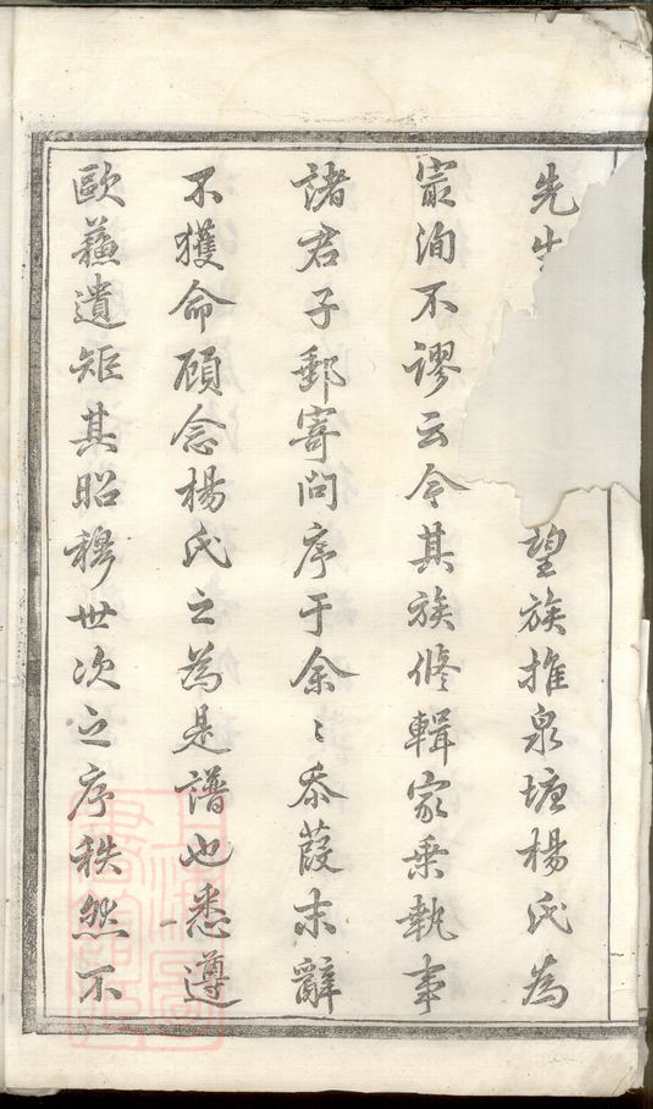 先生望族推泉塘楊氏為
冣洵不謬云今其族修輯家乗執事
諸君子郵寄問序于余〻忝葭末辭
不獲命顧念楊氏之為是譜也悉遵
歐蘓遺矩其昭穆世次之序秩然不
上海圖書館藏